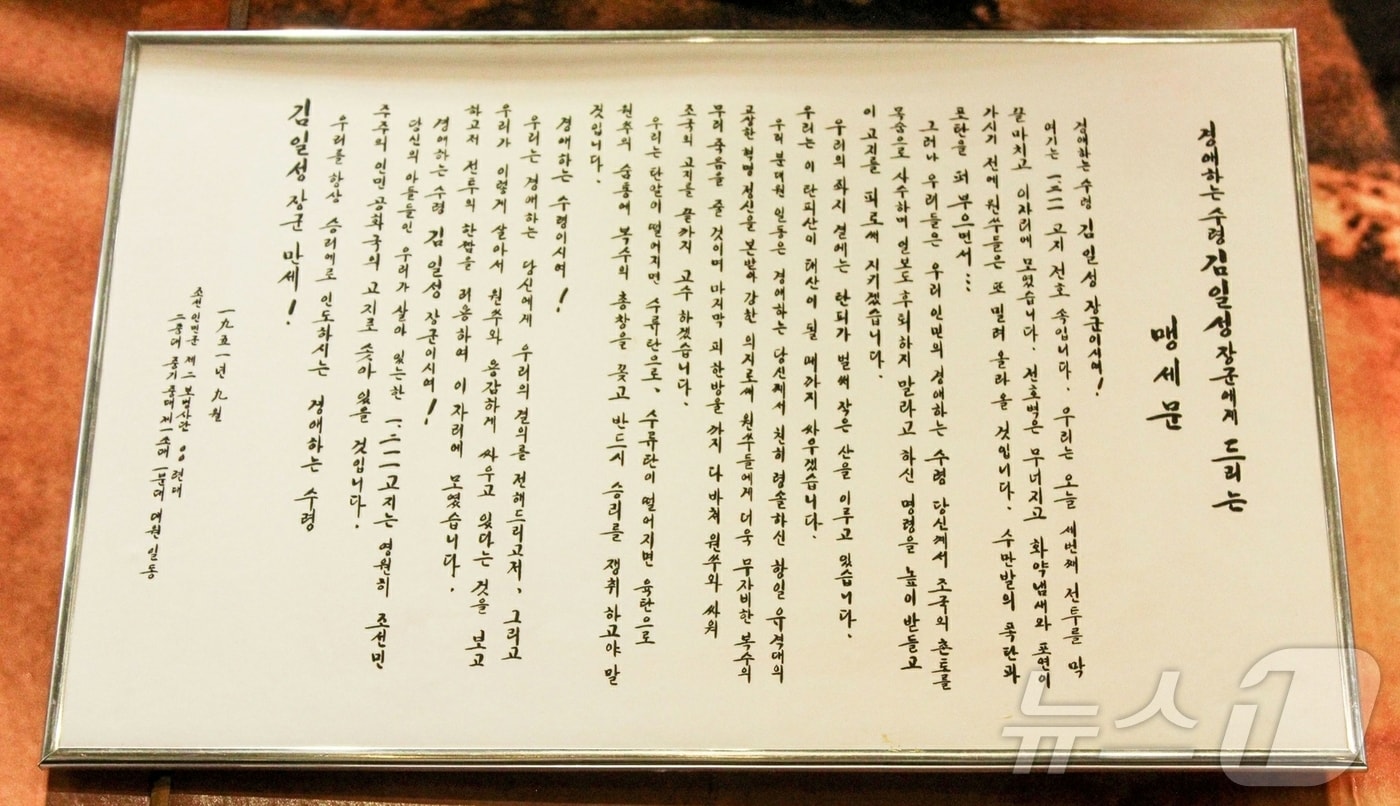 경애하는 수령 김일성 장군에게 드리는
맹세문
경애하는 수령 김일성 장군이시여!
여기는 1.211 고지 전호 속입니다. 우리는 오늘 세번째 전투를 막
끝마치고 이자리에 모였습니다. 전호벽은 무너지고 화약냄새와 포연이
가시기 전에 원쑤들은 또 밀려 올라 올 것입니다. 수만발의 폭탄과
포탄을 퍼 부으면서...
그러나 우리들은 우리 인민의 경애하는 수령 당신께서 조국의 촌토를
목숨으로 사수하며 일보도 후퇴하지 말라고 하신 명령을 높이 받들고
이 고지를 피로써 지키겠습니다.
우리의 좌지 곁에는 탄피가 벌써 작은 산을 이루고 있습니다.
우리는 이 탄피산이 태산이 될 때까지 싸우겠습니다.
우리 분대원 일동은 경애하는 당신께서 친히 령솔하신 항일 유격대의
고상한 혁명 정신을 본받아 강한 의지로써 원쑤들에게 더욱 무자비한 복수의
무리 죽음을 줄 것이며 마지막 피 한방울 까지 다 바쳐 원쑤와 싸워
조국의 고지를 끝까지 고수 하겠습니다.
우리는 탄알이 떨어지면 수류탄으로, 수류탄이 떨어지면 육탄으로
원쑤의 숨통에 복수의 총창을 꽂고 반드시 승리를 쟁취 하고야 말
것입니다.
경애하는 수령이시여!
우리는 경애하는 당신에게 우리의 결의를 전해드리고저, 그리고
우리가 이렇게 살아서 원쑤와 용감하게 싸우고 있다는 것을 보고
하고저 전투의 한짬을 리용하여 이 자리에 모였습니다.
경애하는 수령 김일성 장군이시여!
당신의 아들들인 우리가 살아 있는한 一.二一一고지는 영원히 조선민
주주의 인민 공화국의 고지로 솟아 있을 것입니다.
우리를 항상 승리에로 인도하시는 경애하는 수령
김일성 장군 만세!
一九五一년 九월
조선인민군 제二보병사단 00련대
二중대 중기중대 제一소대 一분대 대원일동
뉴스1